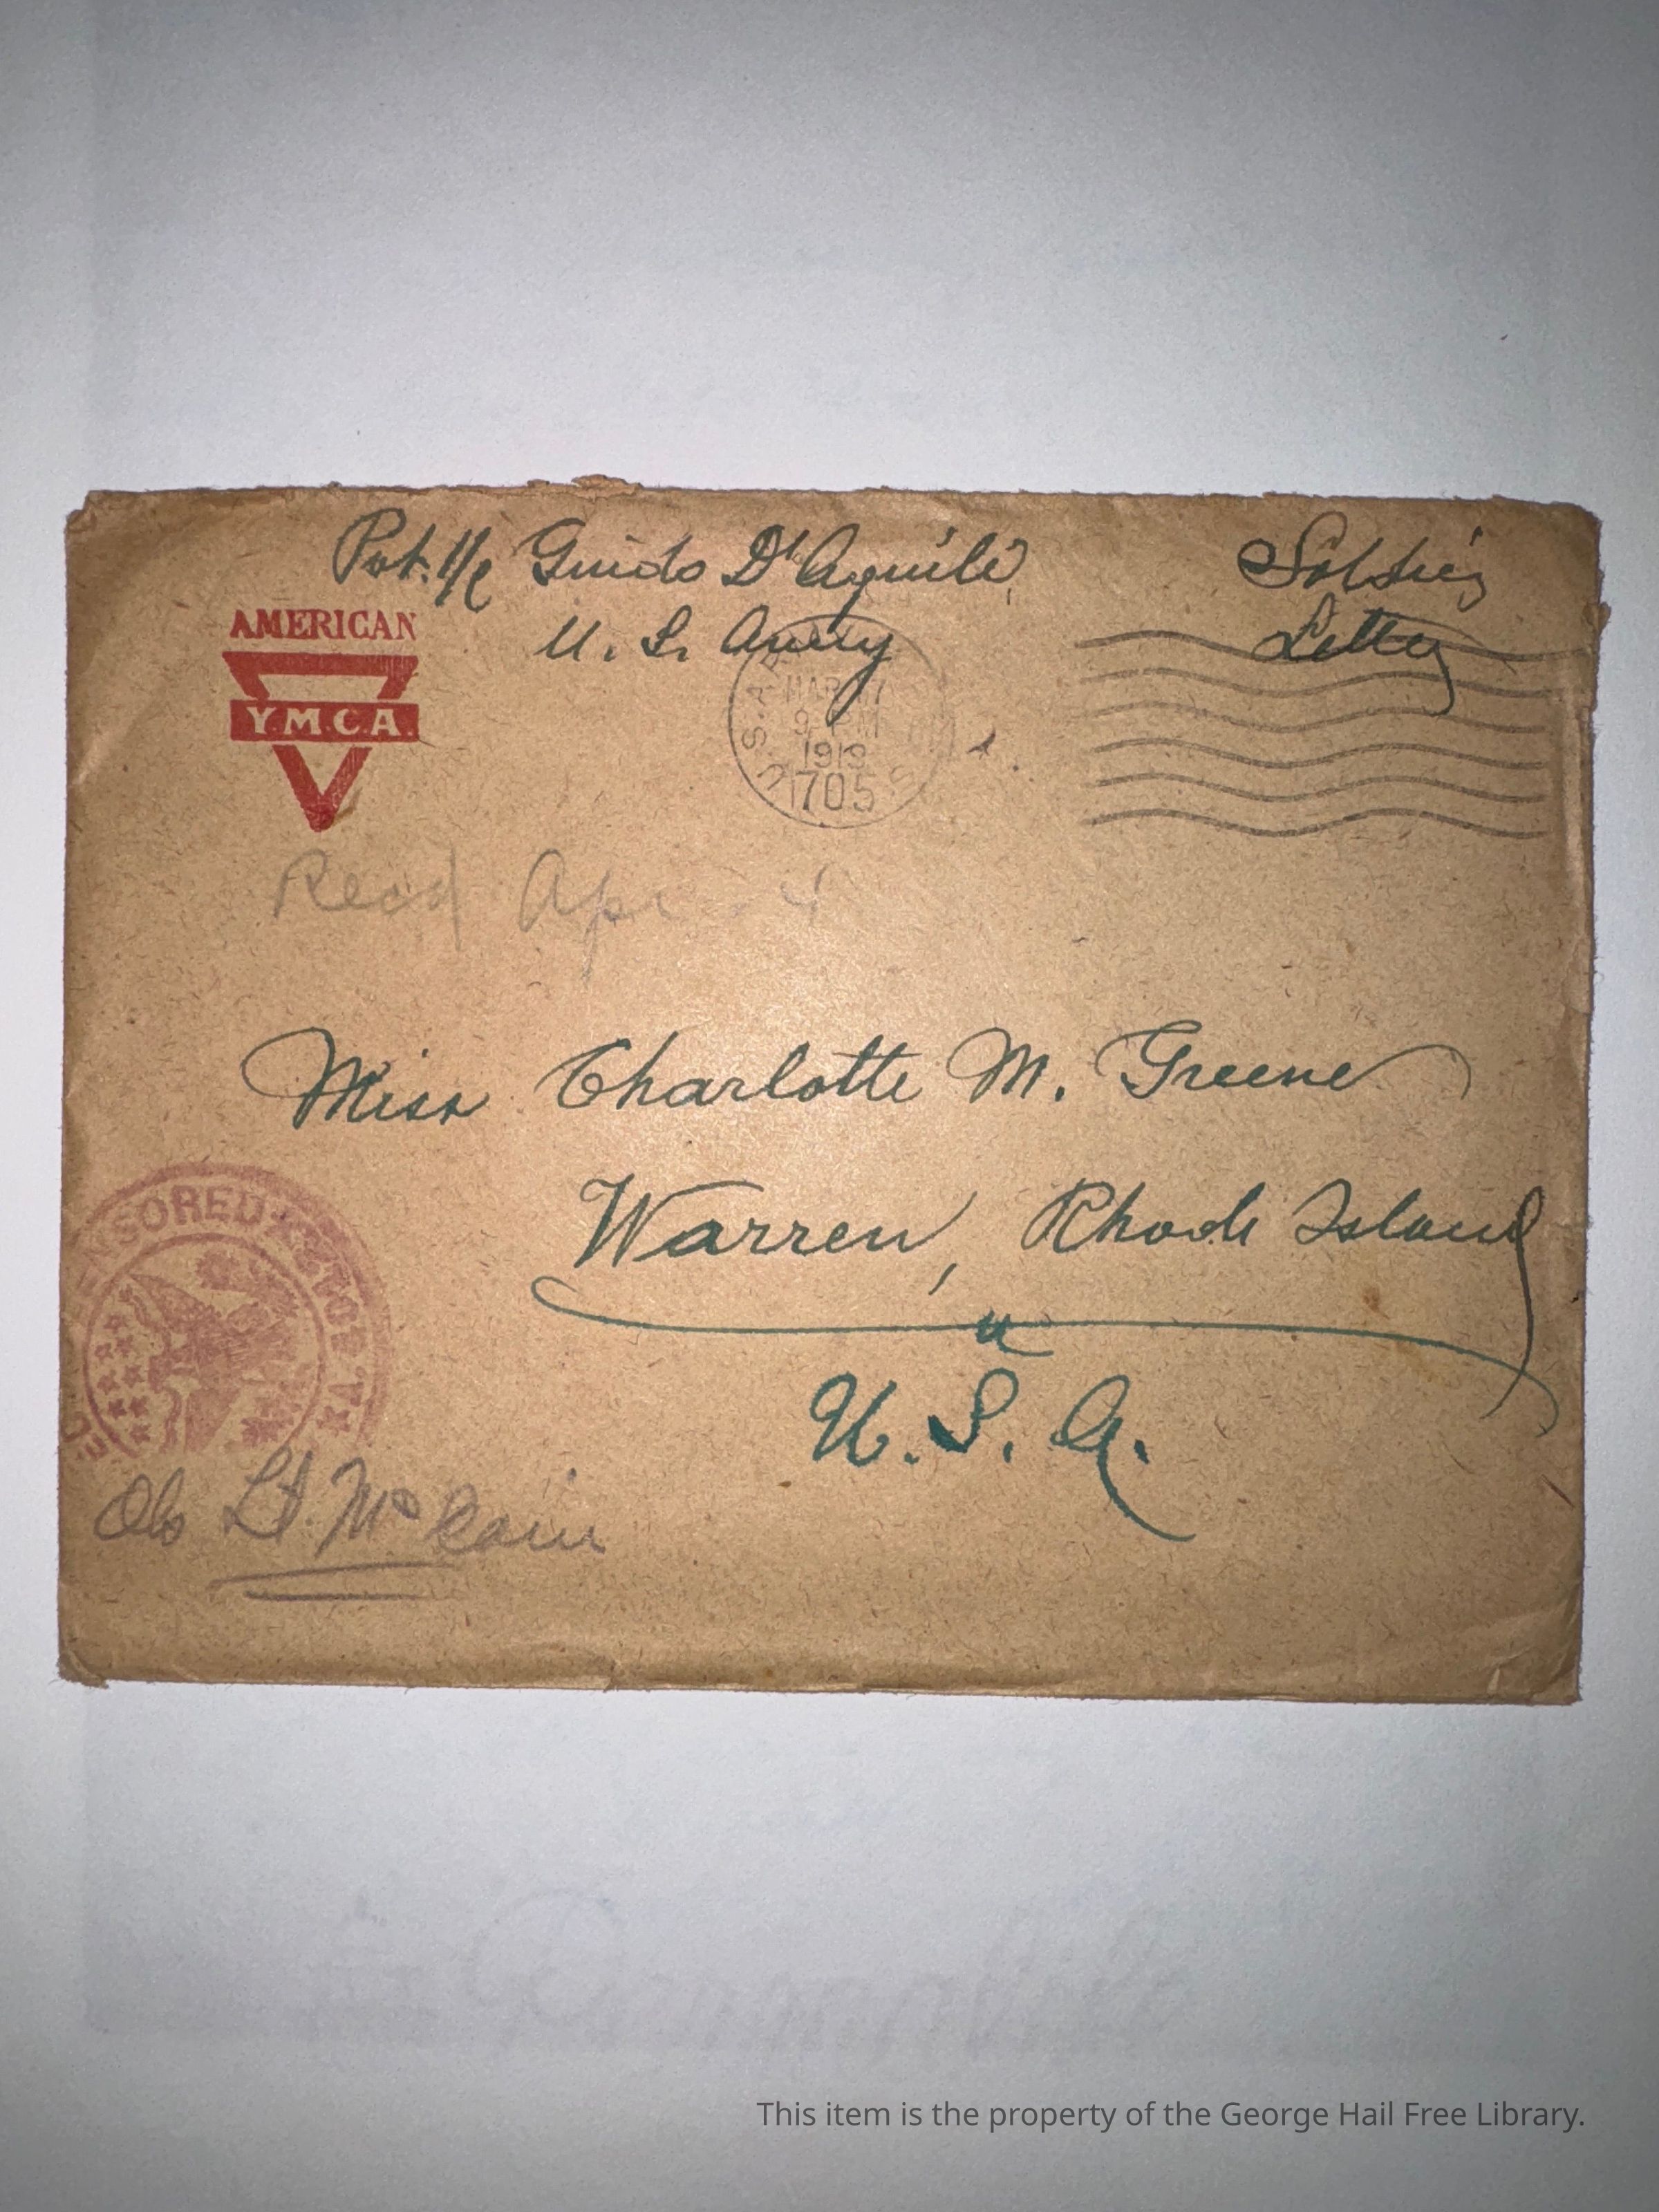 Pvt. 1/c Guido D'Aquili,
U. S. Army
Soldier's
Letter
AMERICAN
Y.M.C.A.
MAR 17
9 PM
1919
705
Recd Apr - 4
Miss Charlotte M. Greene
Warren, Rhode Island
U. S. A.
CENSORED
A.E.F.
OK Lt. McCain
This item is the property of the George Hail Free Library.